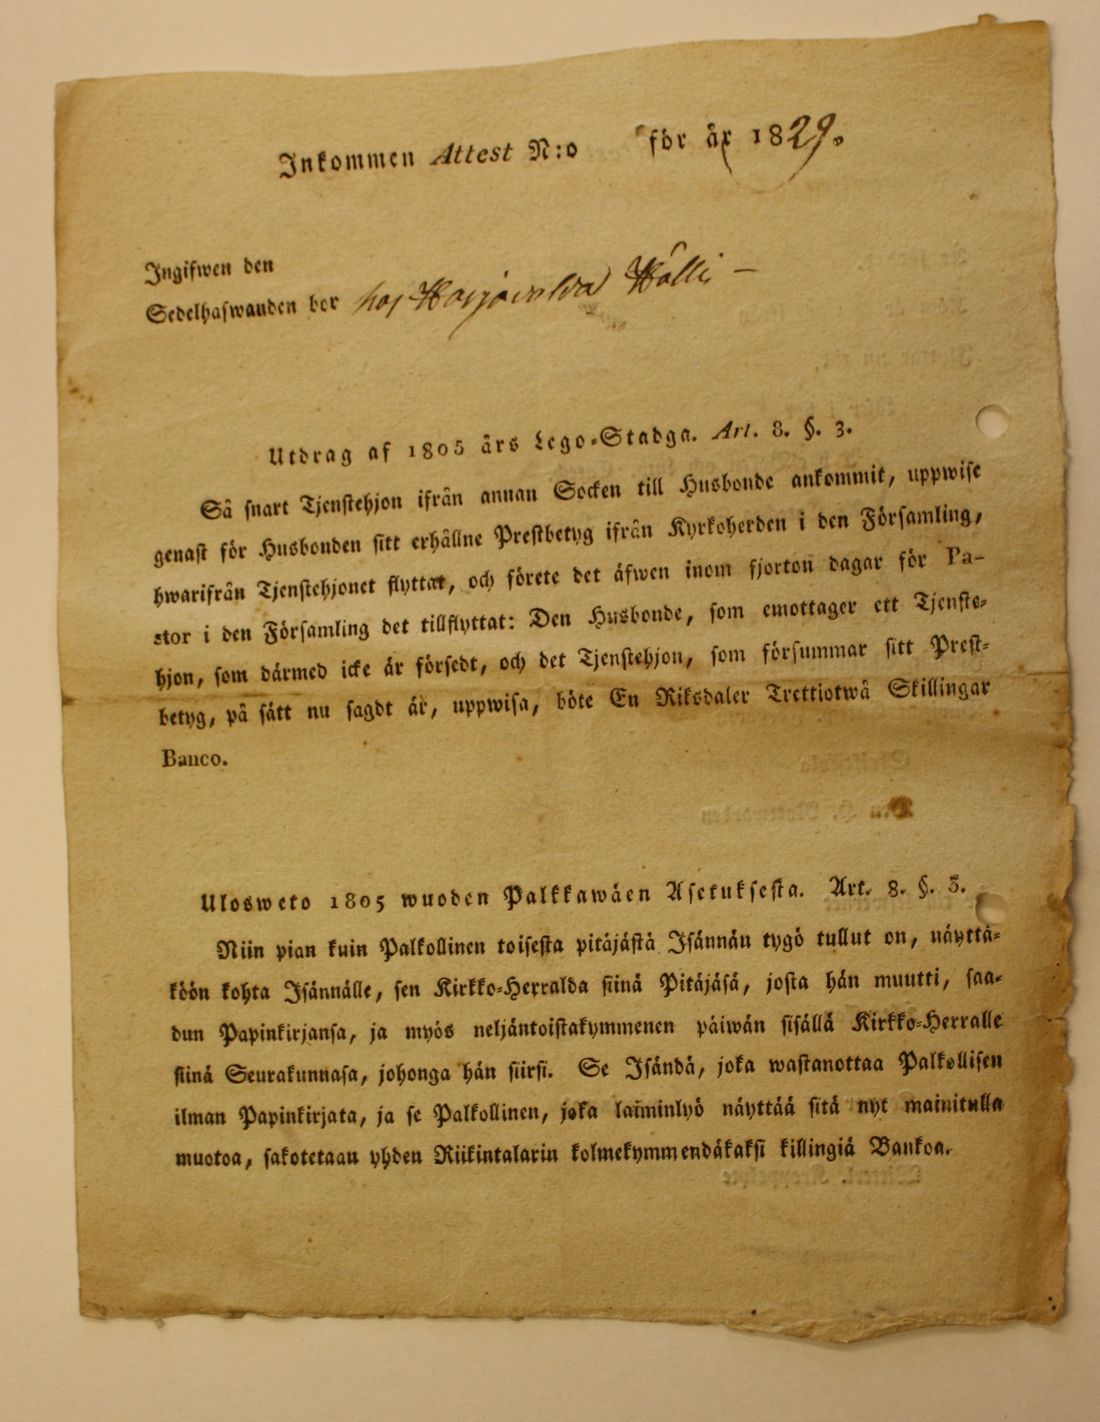 Inkommen Attest N:o för år 1829.
Ingifwen den
Sedelhafwanden bor hos
Utdrag af 1805 års Lego-Stadga. Art. 8. §. 3.
Så snart Tjenstehjon ifrån annan Socken till Husbonde ankommit, uppwise
genast för Husbonden sitt erhållne Prestbetyg ifrån Kyrkoherden i den Församling,
hwarifrån Tjenstehjonet flyttat, och förete det äfwen inom fjorton dagar för Pa-
stor i den Församling det tillflyttat: Den Husbonde, som emottager ett Tjenste-
hjon, som därmed icke är försedt, och det Tjenstehjon, som försummar sitt Prest-
betyg, på sätt nu sagdt är, uppwisa, böte En Riksdaler Trettiotwå Skillingar
Banco.
Ulosweto 1805 wuoden Palkkawäen Asetuksesta. Art. 8. §. 3.
Niin pian kuin Palkollinen toisesta pitäjästä Isännän tygö tullut on, näyttä-
köön kohta Isännälle, sen Kirkko-Herralda siinä Pitäjäsä, josta hän muutti, saa-
dun Papinkirjansa, ja myös neljäntoistakymmenen päiwän sisällä Kirkko-Herralle
siinä Seurakunnasa, johonga hän siirsi. Se Isändä, joka wastanottaa Palkollisen
ilman Papinkirjata, ja se Palkollinen, joka laiminlyö näyttää sitä nyt mainitulla
muotoa, sakotetaan yhden Riikintalarin kolmekymmendäkaksi killingiä Bankoa.